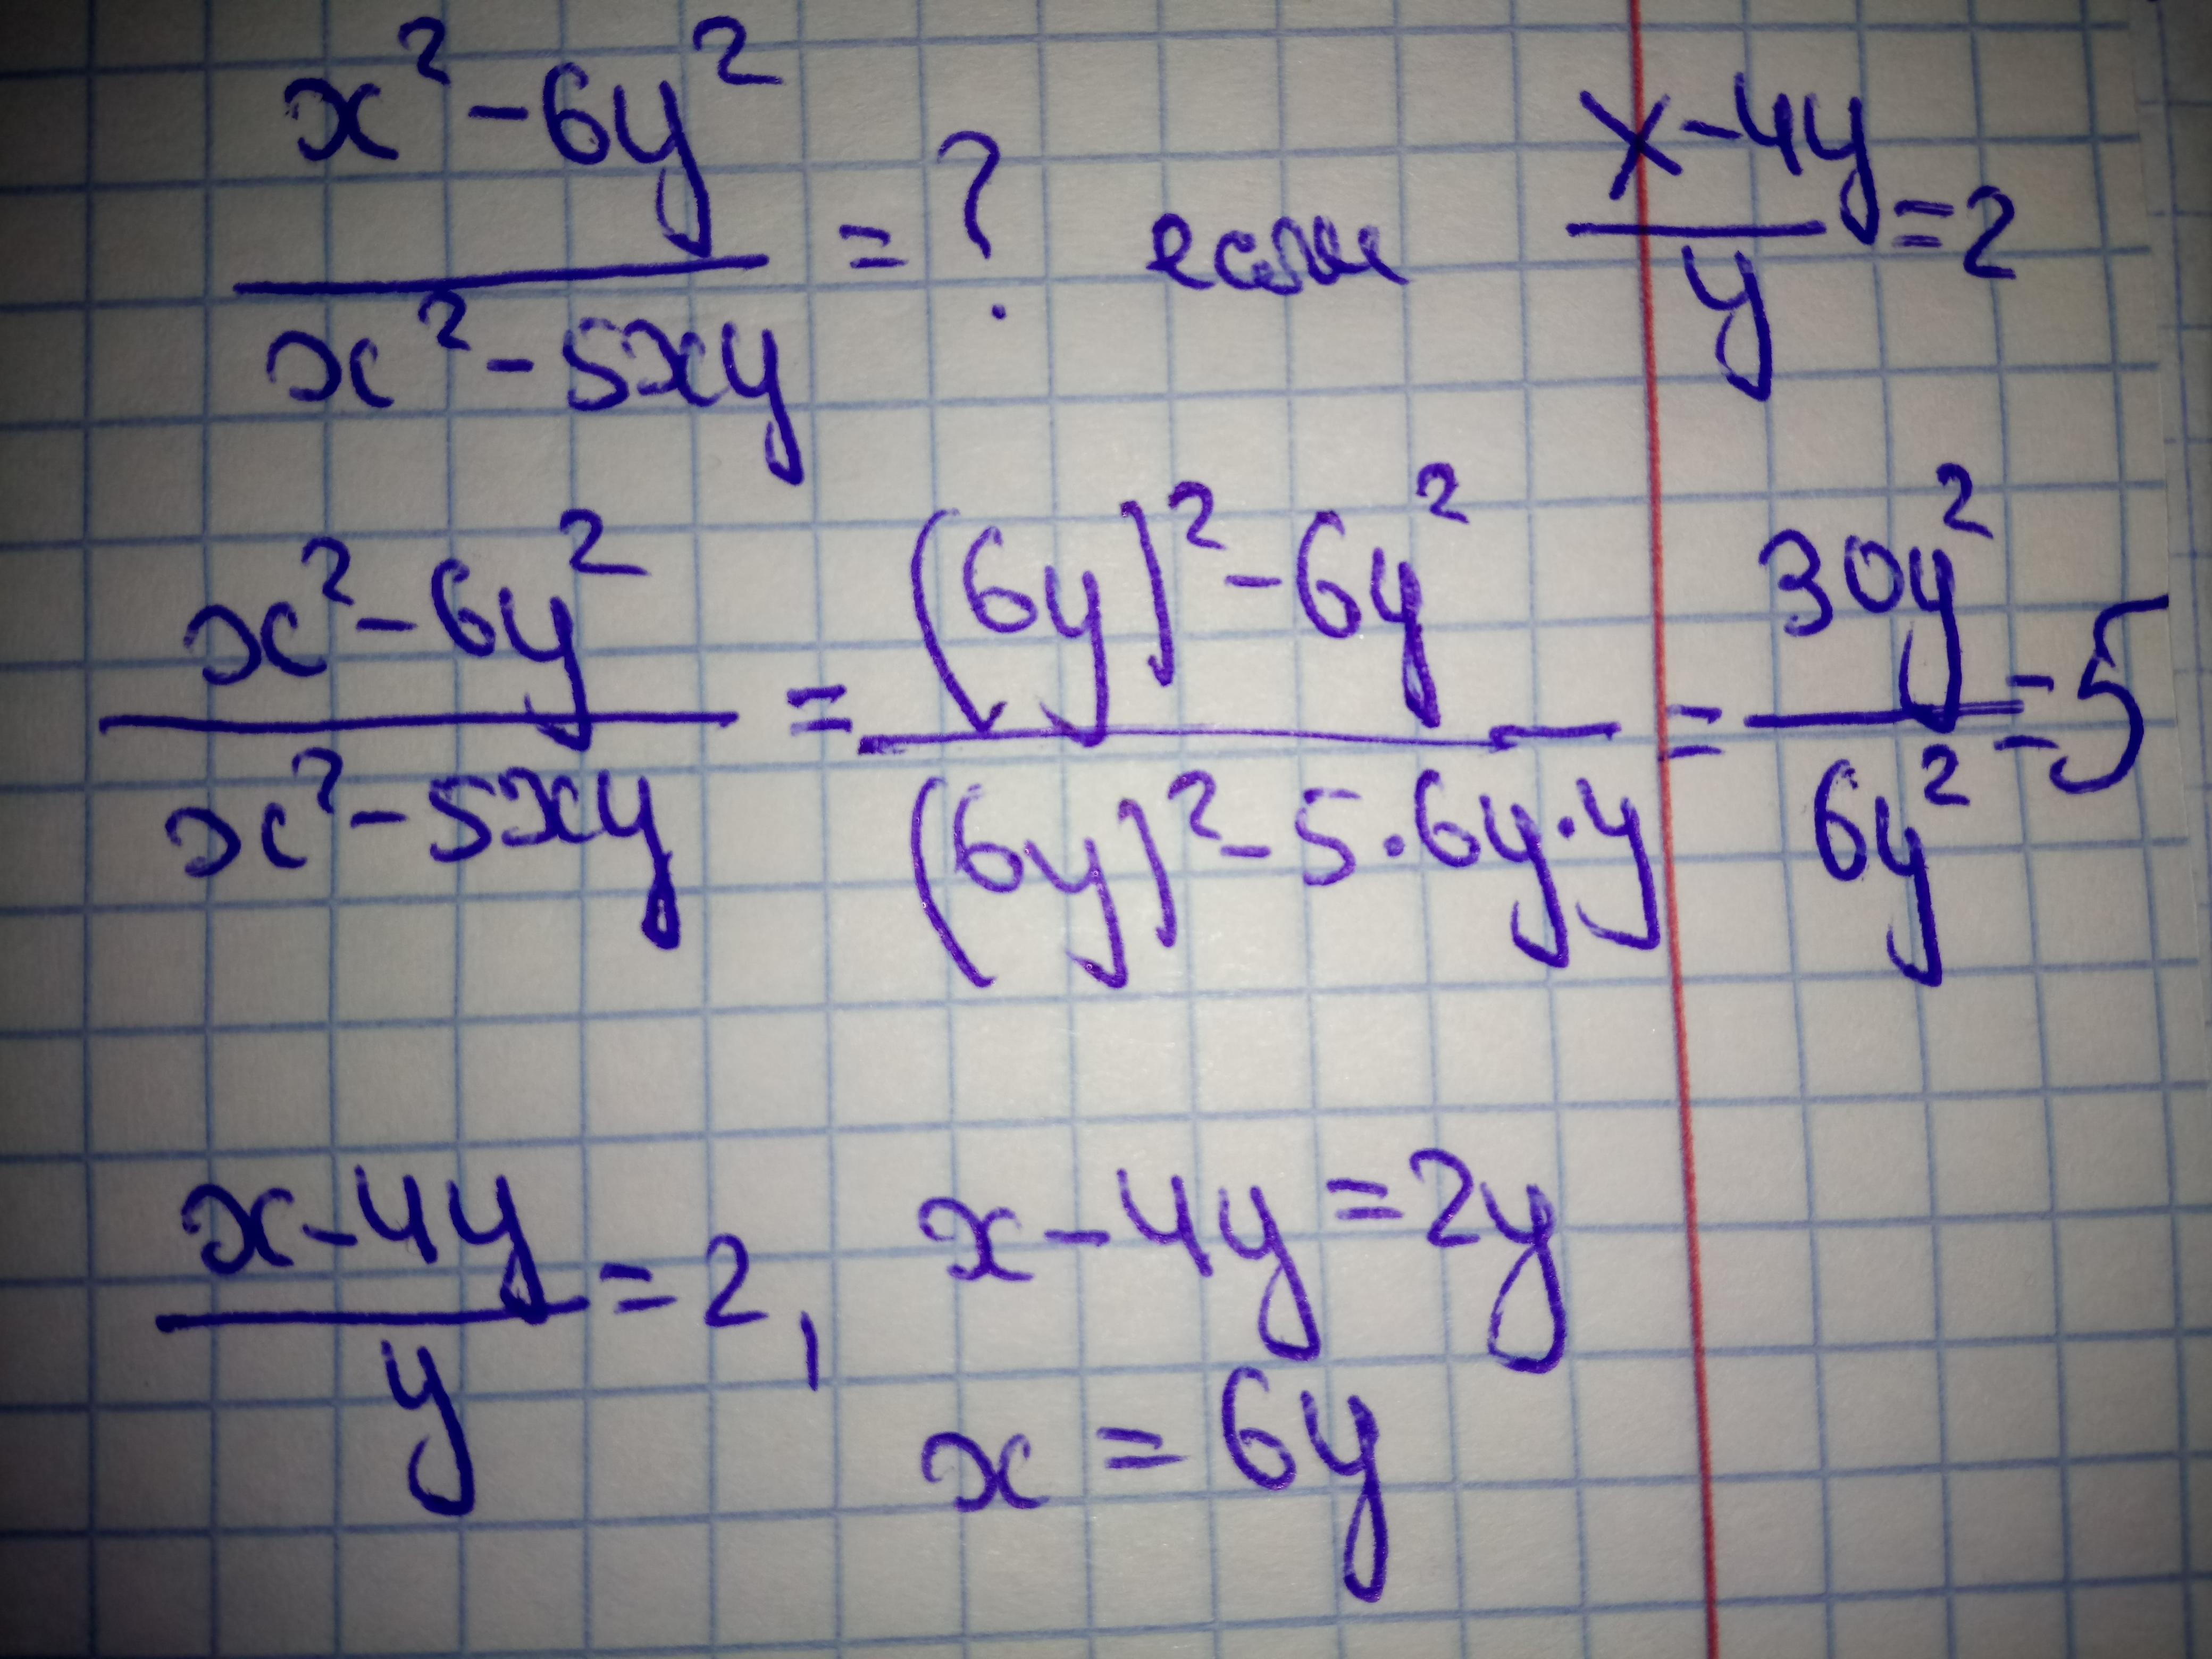 (x² - 6y²)/(x² - 5xy) = ? если (x - 4y)/y = 2
(x² - 6y²)/(x² - 5xy) = ((6y)² - 6y²)/((6y)² - 5·6y·y) = 30y²/6y² = 5
(x - 4y)/y = 2, x - 4y = 2y
x = 6y